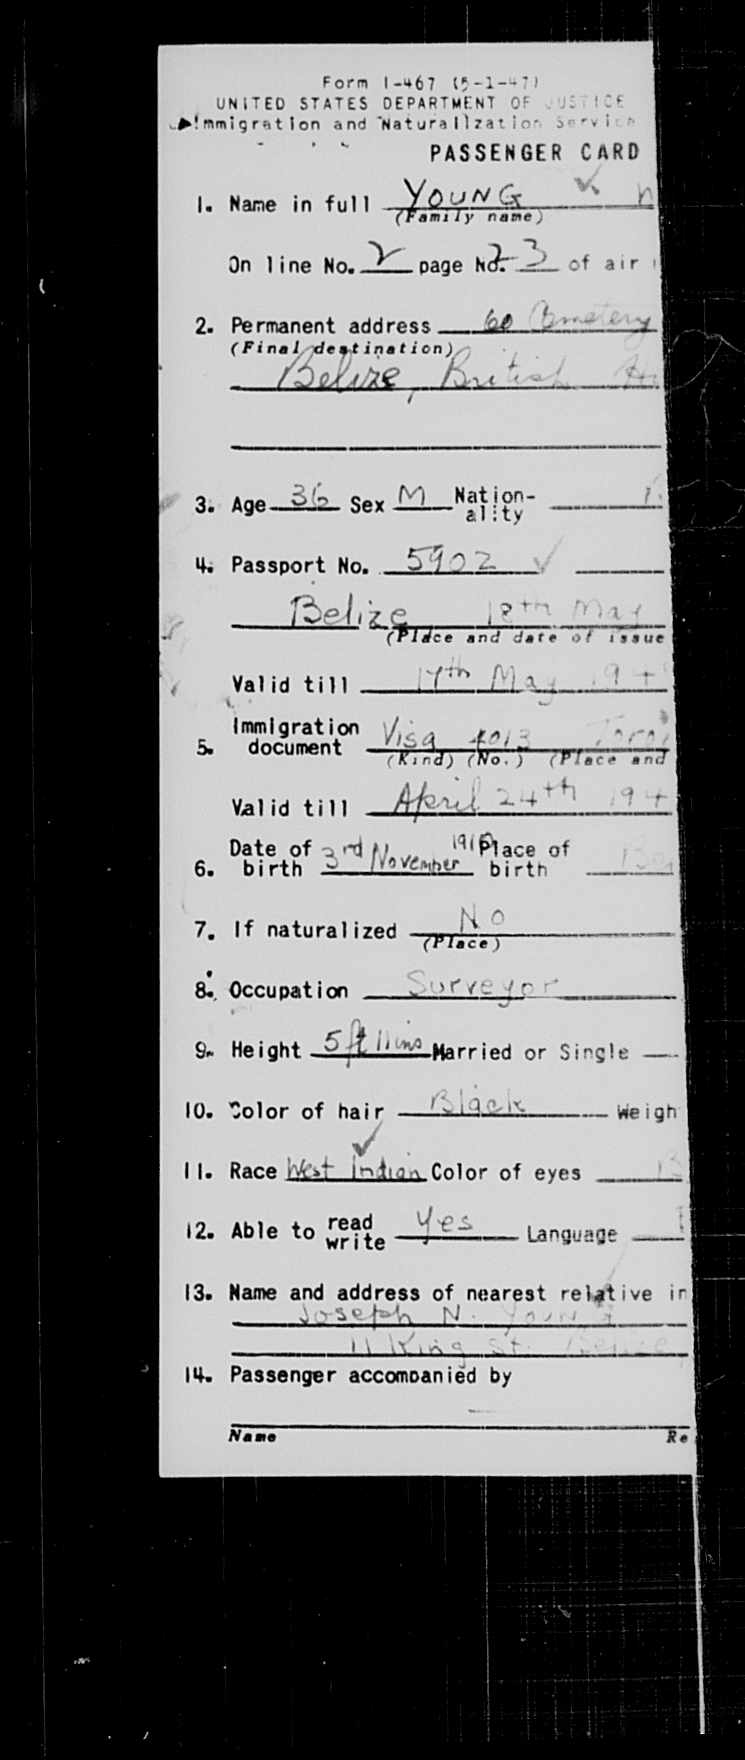 Form I-467 (5-1-47)
UNITED STATES DEPARTMENT OF JUSTICE
Immigration and Naturalization Service
PASSENGER CARD
1. Name in full YOUNG
(Family name)
On line No. 2 page No. 3 of air
2. Permanent address 60 Cemetery
(Final destination)
Belize, British
3. Age 36 Sex M Nation-
ality
4. Passport No. 5902
Belize 18th May
(Place and date of issue
Valid till 17th May 194
5. Immigration
document Visa 4013
(Kind) (No.) (Place and
Valid till April 24th 194
6. Date of
birth 3rd November Place of
birth
7. If naturalized No
(Place)
8. Occupation Surveyor
9. Height 5ft 11ins Married or Single
10. Color of hair Black Weigh
11. Race West Indian Color of eyes
12. Able to read
write Yes Language
13. Name and address of nearest relative in
Joseph N. Young
11 King St. Belize
14. Passenger accompanied by
Name Re